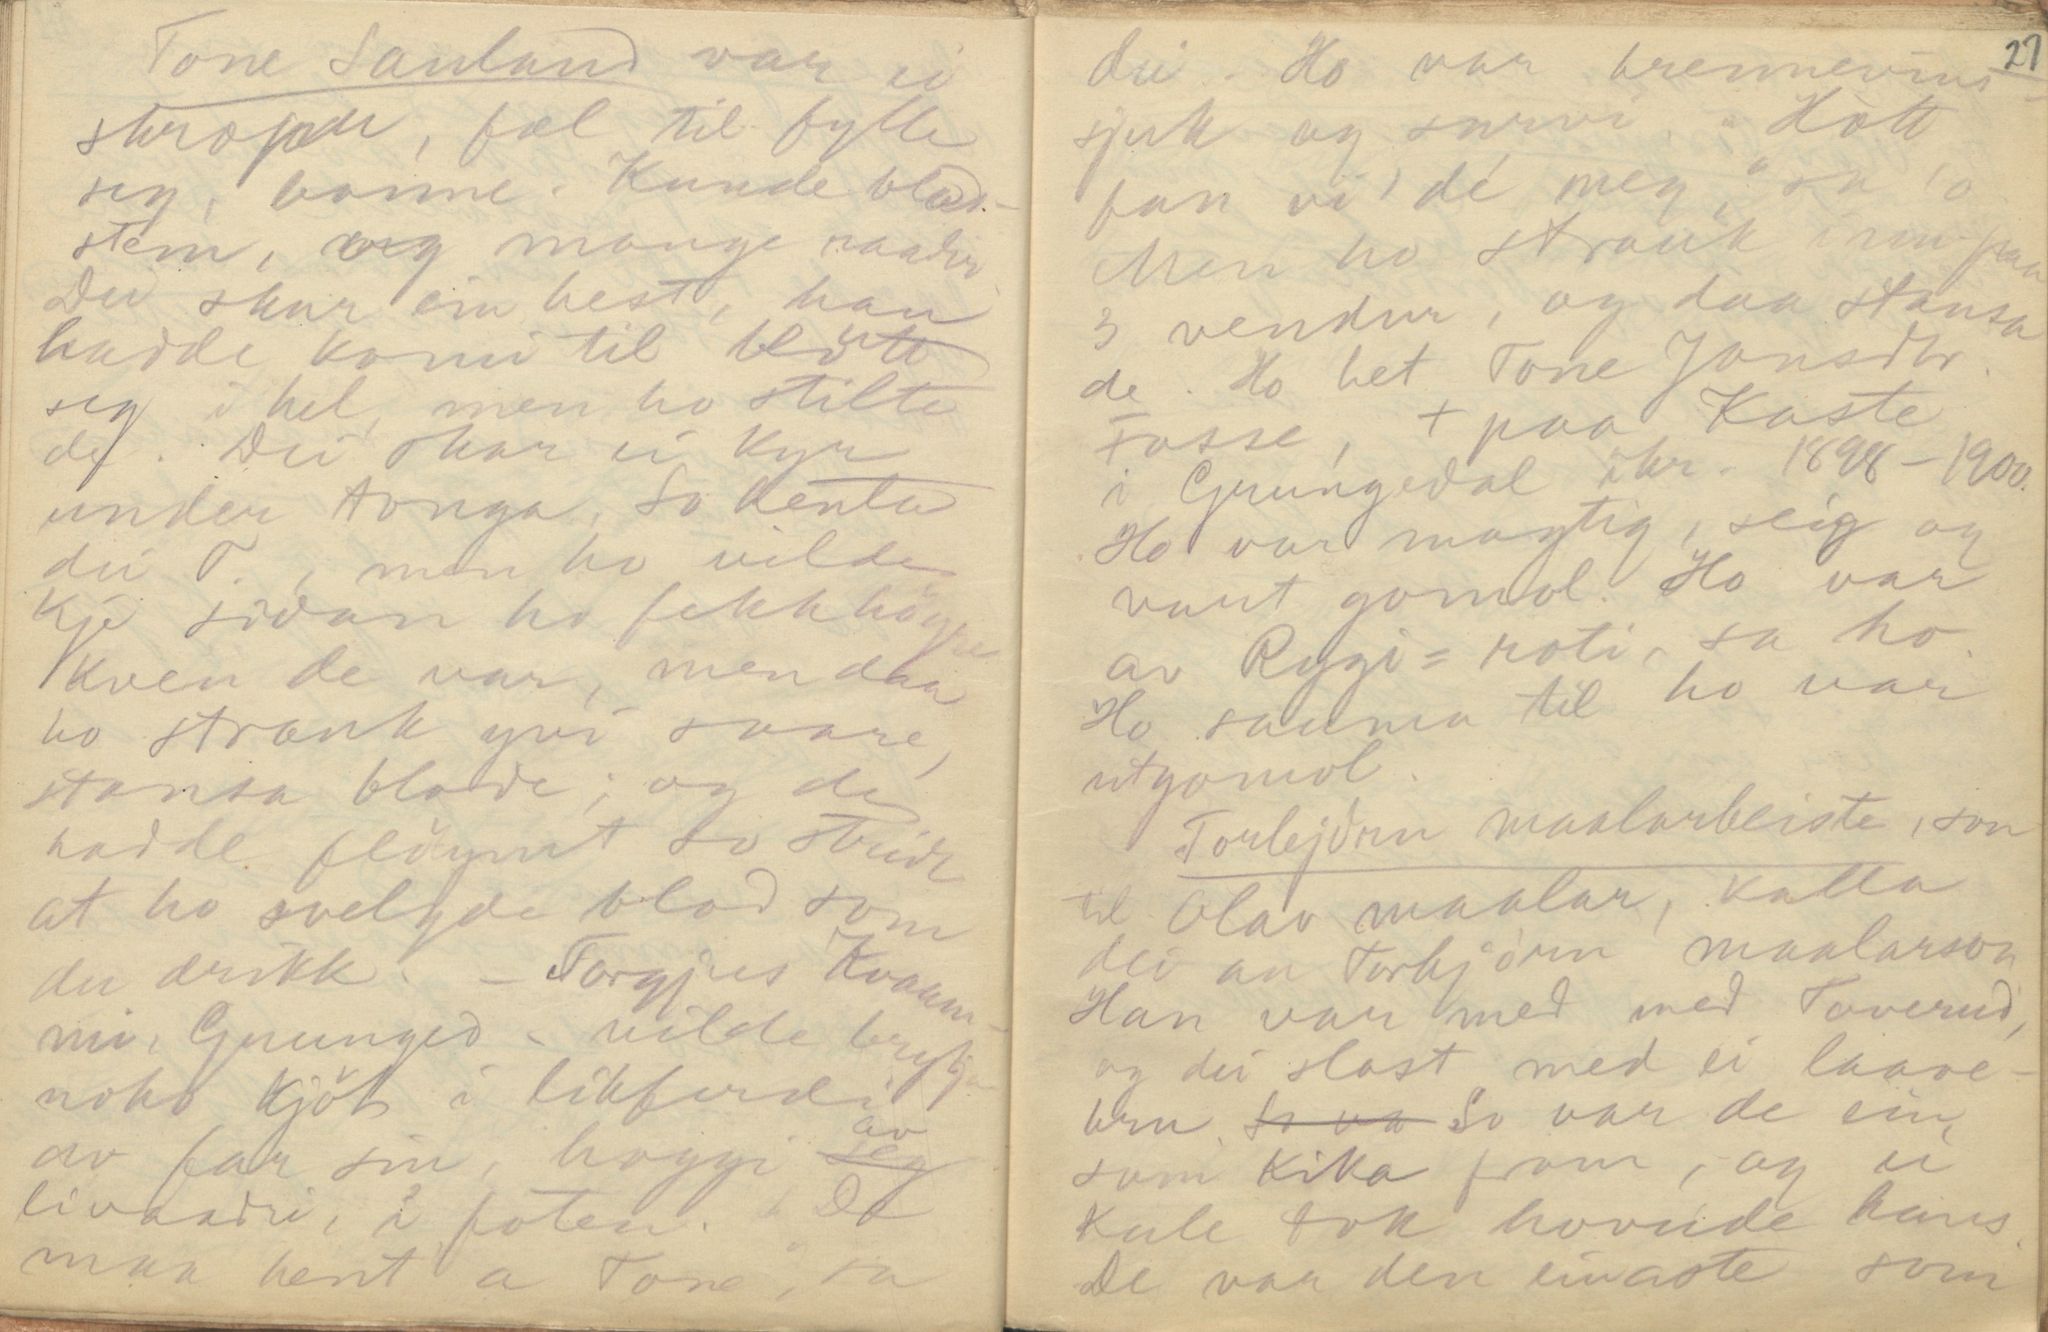 Tone Sauland var ei
skröpele, fæl til fylle
seg, banne. Kunde blod-
stem, og mange raadir
Dei skar ein hest, han
hadde komi til blött
seg i hel, men ho stilte
de. Dei skar ei kyr
under tonga, so henta
dei T., men ho vilde
kje sidan ho fekk högre
kven de var, men daa
ho strauk yvi saare,
stansa blode; og de
hadde flöymt so stridt
at ho svelgde blod som
du drikk. – Torgjus Kvaam-
mi, Grunged. vilde brytja
noko kjöt i likferdi
av far sin, hoggi seg av
livaadri, i foten. "Do
maa hent a Tone", sa
27
dei. Ho var brennevins-
sjuk og survi. "Hott
fan vi' de' meg," sa 'o
Men ho strauk inn paa
3 vendur, og daa stansa
de. Ho het Tone Jonsdtr.
Fosse, + paa Kaste
i Grungedal ikr. 1898–1900.
Ho var magtig, seig og
vart gomol. Ho var
av Rygi=roti, sa ho.
Ho sauma til ho var
utgomol.
Torbjörn maalarbeiste, son
til Olav maalar, kalla
dei an Torbjörn maalarson
Han var med med Toverud,
og dei slost med ei laave-
bru. So va So var de ein,
som kika fram, og ei
kule tok hovude hans.
De var den einaste som